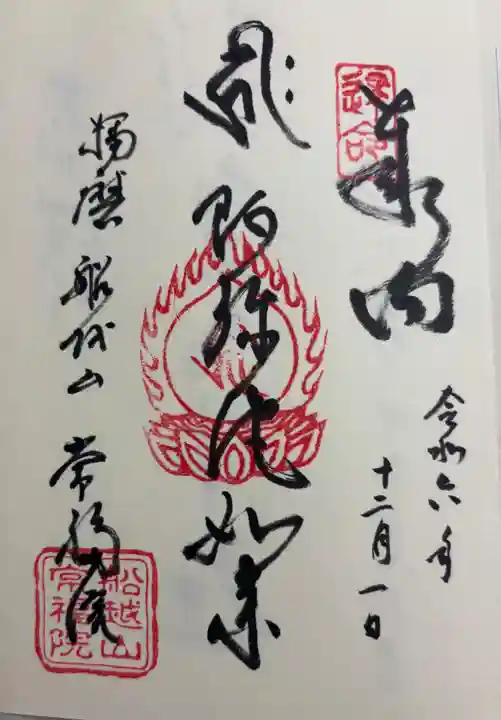 令和六年
十二月一日
阿弥陀如来
播磨 船越山 常福院
船越山
常福院